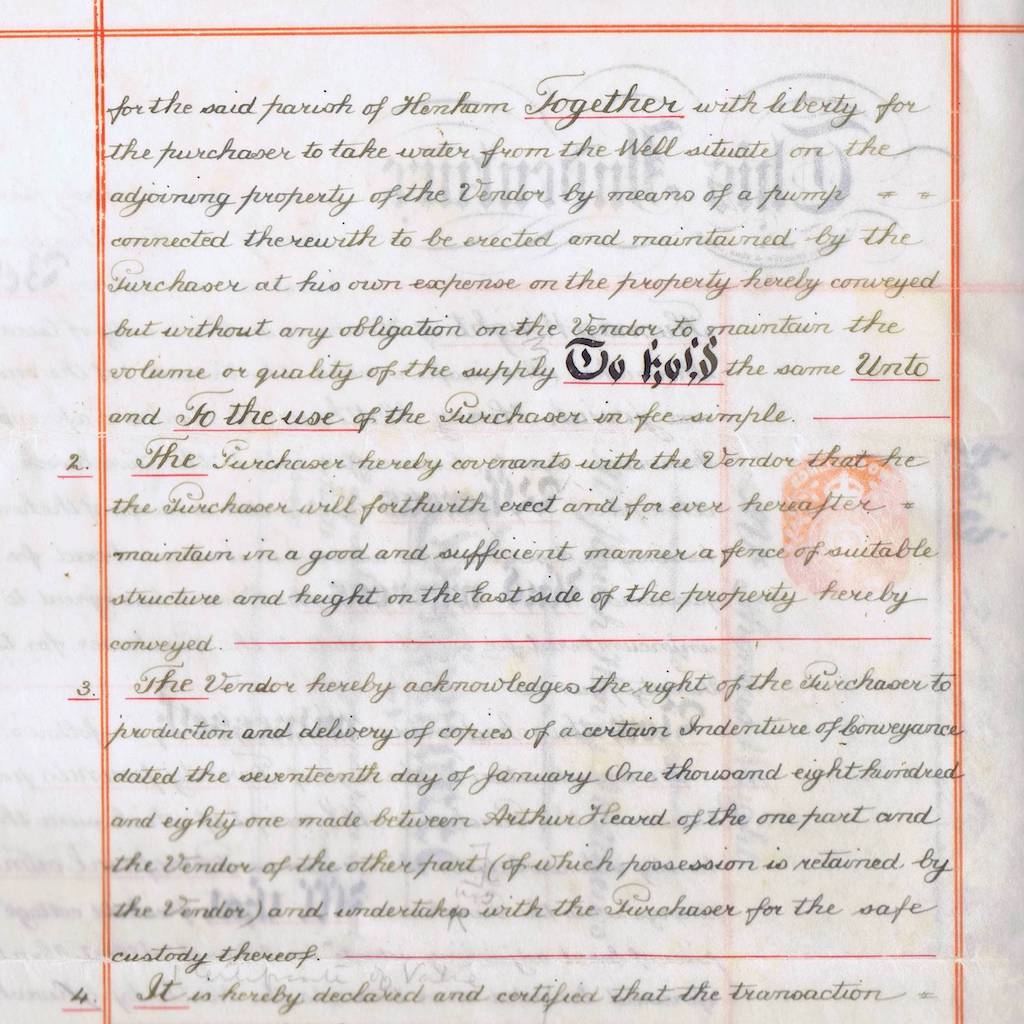 for the said parish of Henham Together with liberty for
the purchaser to take water from the Well situate on the
adjoining property of the Vendor by means of a pump = =
connected therewith to be erected and maintained by the
Purchaser at his own expense on the property hereby conveyed
but without any obligation on the Vendor to maintain the
volume or quality of the supply To hold the same Unto
and To the use of the Purchaser in fee simple.
2. The Purchaser hereby covenants with the Vendor that he
the Purchaser will forthwith erect and for ever hereafter =
maintain in a good and sufficient manner a fence of suitable
structure and height on the East side of the property hereby
conveyed.
3. The Vendor hereby acknowledges the right of the Purchaser to
production and delivery of copies of a certain Indenture of Conveyance
dated the seventeenth day of January One thousand eight hundred
and eighty one made between Arthur Heard of the one part and
the Vendor of the other part (of which possession is retained by
the Vendor) and undertakes with the Purchaser for the safe
custody thereof.
Certificate of Value
4. It is hereby declared and certified that the transaction =